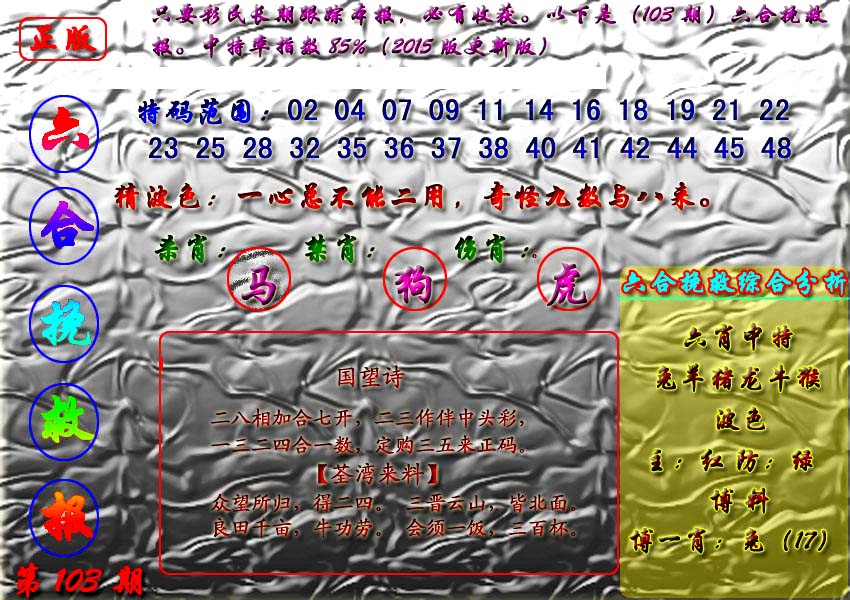 正版
只要彩民长期跟踪本报，必有收获。以下是（103 期）六合挽救
报。中特率指数 85%（2015 版更新版）
六
合
挽
救
报
第 103 期
特码范围：02 04 07 09 11 14 16 18 19 21 22
23 25 28 32 35 36 37 38 40 41 42 44 45 48
猜波色：一心总不能二用，奇怪九数与八来。
杀肖：马 禁肖：狗 伤肖：虎
国望诗
二八相加合七开，二三作伴中头彩，
一三二四合一数，定购三五来正码。
【荃湾来料】
众望所归，得二四。 三晋云山，皆北面。
良田千亩，牛功劳。 会须一饭，三百杯。
六合挽救综合分析
六肖中特
兔羊猪龙牛猴
波色
主：红 防：绿
博料
博一肖：兔（17）